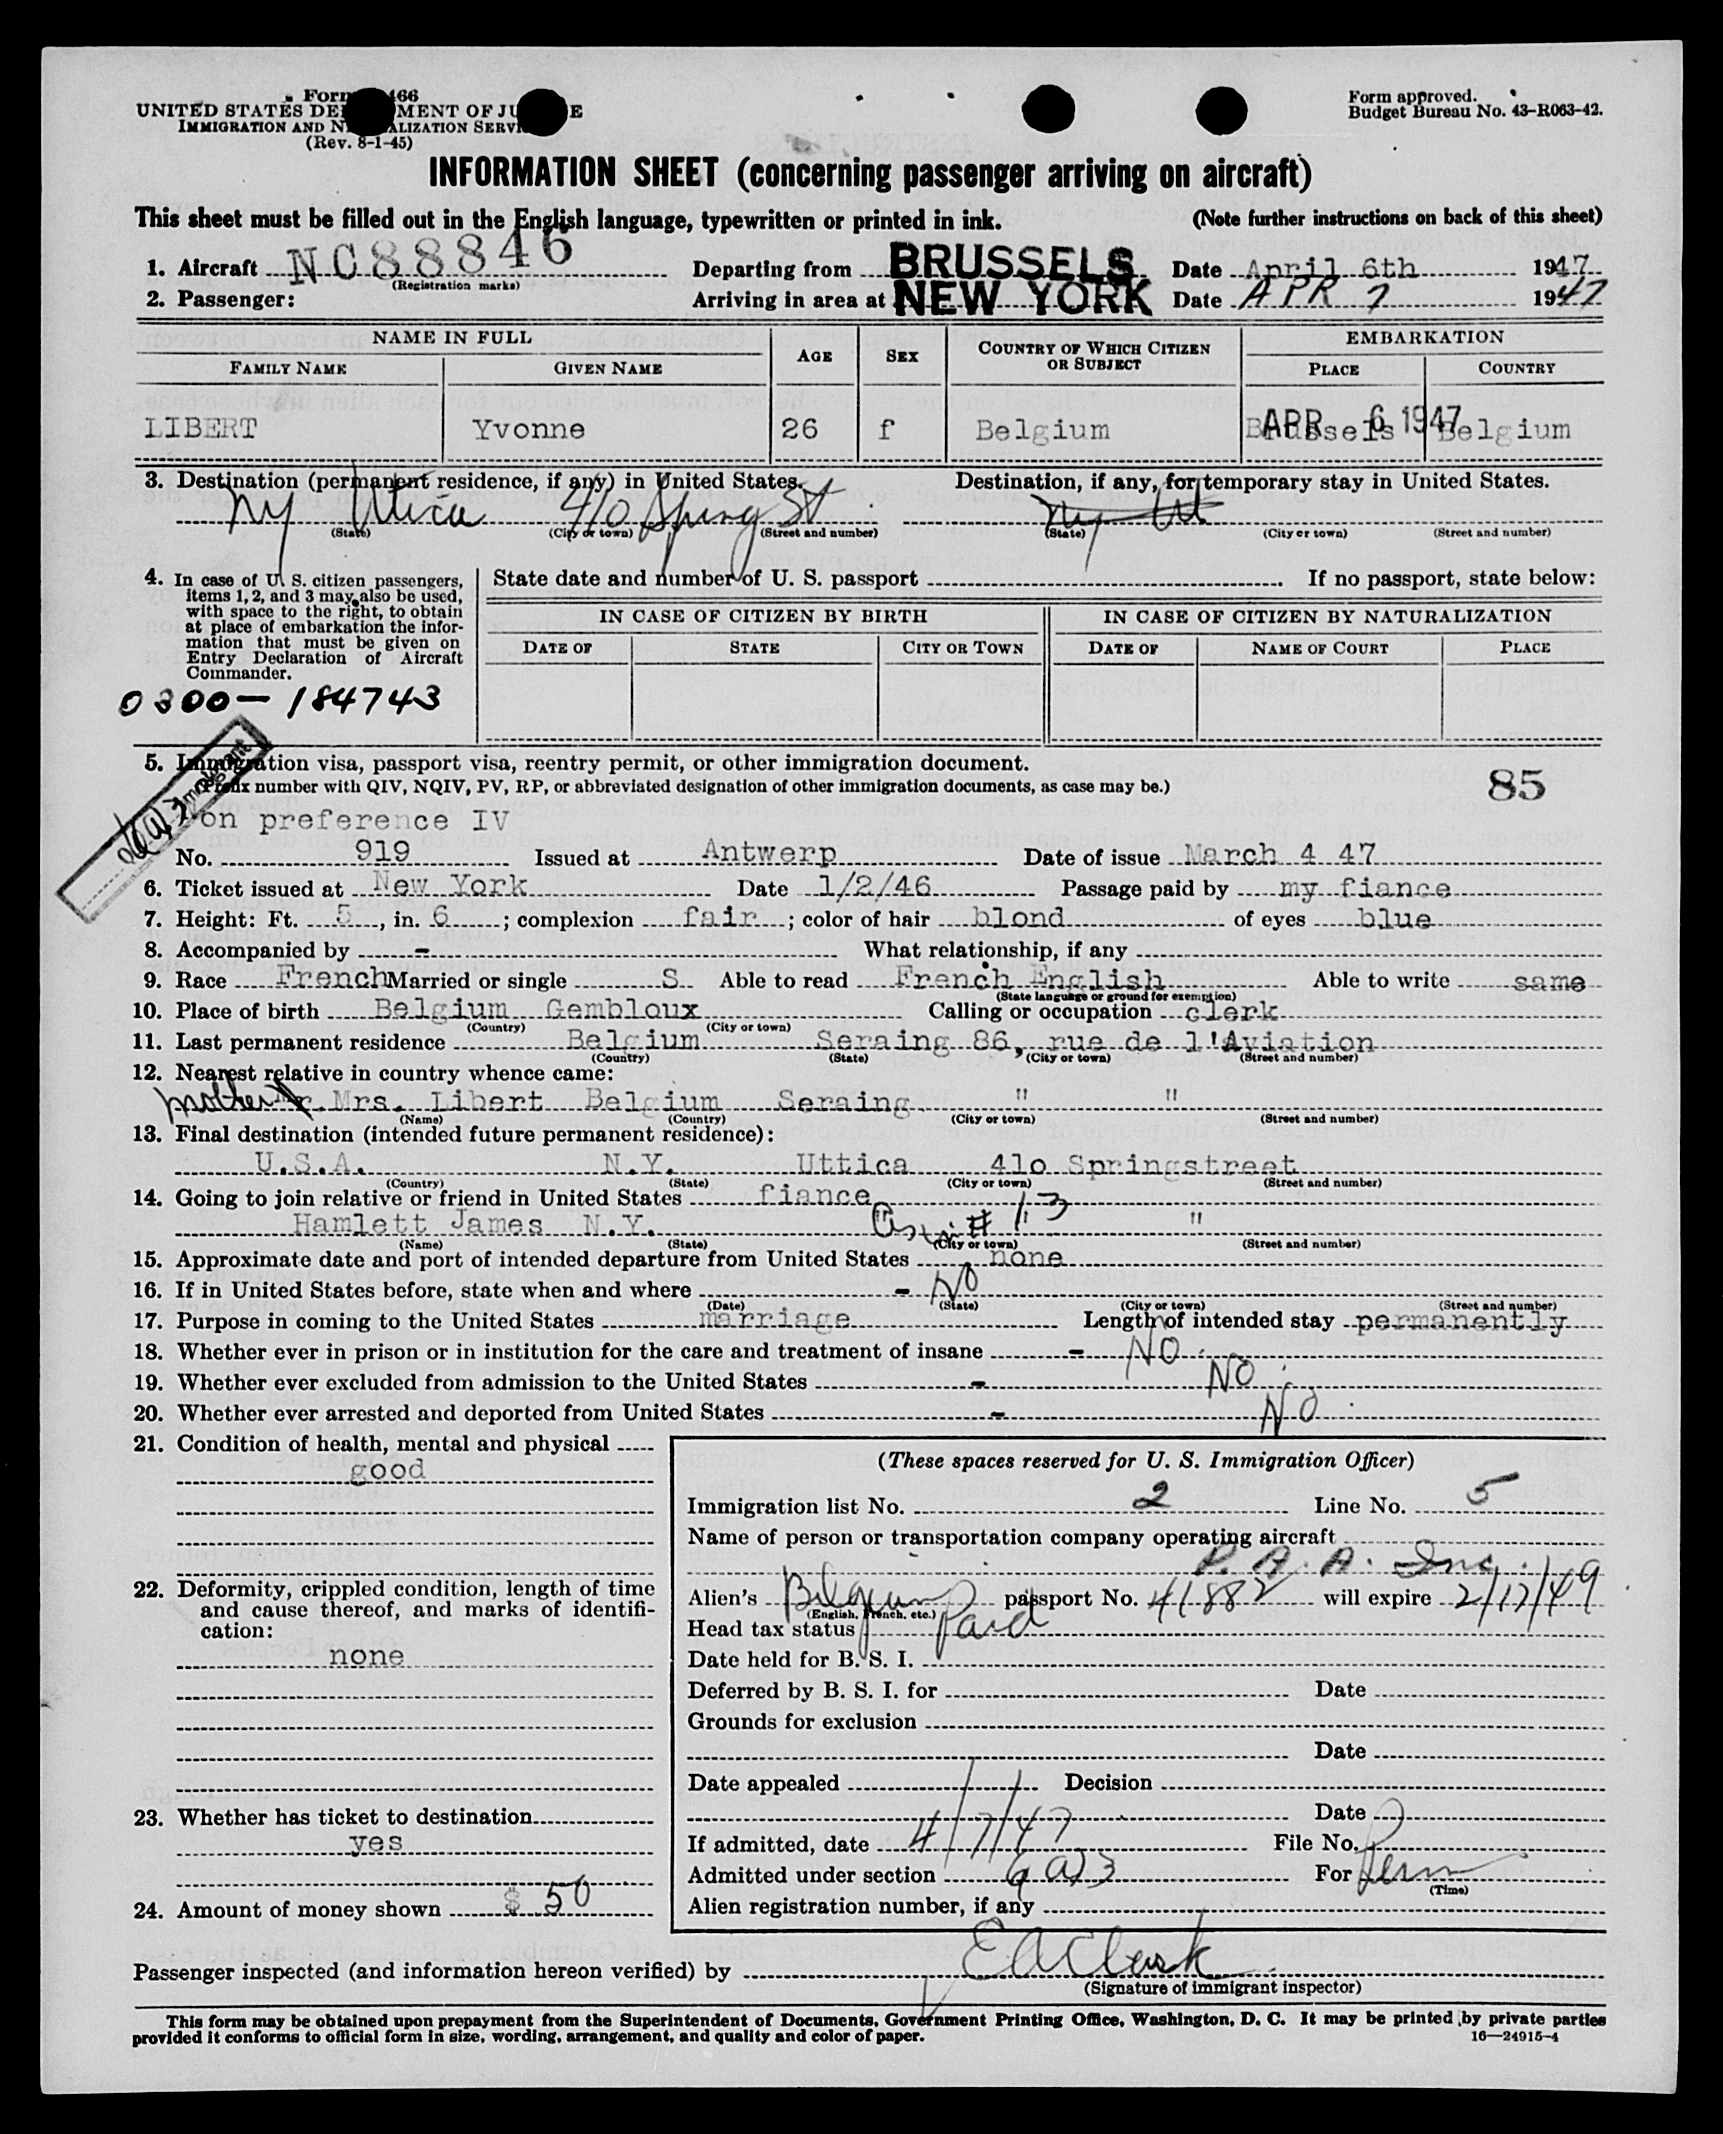 Form 466
UNITED STATES DEPARTMENT OF JUSTICE
IMMIGRATION AND NATURALIZATION SERVICE
(Rev. 8-1-45)
Form approved.
Budget Bureau No. 43-R063-42.
INFORMATION SHEET (concerning passenger arriving on aircraft)
This sheet must be filled out in the English language, typewritten or printed in ink.
(Note further instructions on back of this sheet)
1. Aircraft NC88846 Departing from BRUSSELS Date April 6th 1947
(Registration marks)
2. Passenger: Arriving in area at NEW YORK Date APR 7 1947
NAME IN FULL AGE SEX COUNTRY OF WHICH CITIZEN OR SUBJECT EMBARKATION
FAMILY NAME GIVEN NAME PLACE COUNTRY
LIBERT Yvonne 26 f Belgium Brussels Belgium
APR 6 1947
3. Destination (permanent residence, if any) in United States. Destination, if any, for temporary stay in United States.
NY Utica 410 Spring St NY Ut
(State) (City or town) (Street and number) (State) (City or town) (Street and number)
4. In case of U. S. citizen passengers, items 1, 2, and 3 may also be used, with space to the right, to obtain at place of embarkation the information that must be given on Entry Declaration of Aircraft Commander.
State date and number of U. S. passport If no passport, state below:
IN CASE OF CITIZEN BY BIRTH IN CASE OF CITIZEN BY NATURALIZATION
DATE OF STATE CITY OR TOWN DATE OF NAME OF COURT PLACE
0300-184743
5. Immigration visa, passport visa, reentry permit, or other immigration document.
(Prefix number with QIV, NQIV, PV, RP, or abbreviated designation of other immigration documents, as case may be.)
85
Non preference IV
No. 919 Issued at Antwerp Date of issue March 4 47
6. Ticket issued at New York Date 1/2/46 Passage paid by my fiance
7. Height: Ft. 5, in. 6; complexion fair; color of hair blond of eyes blue
8. Accompanied by - What relationship, if any
9. Race French Married or single S Able to read French English Able to write same
(State language or ground for exemption)
10. Place of birth Belgium Gembloux Calling or occupation clerk
(Country) (City or town)
11. Last permanent residence Belgium Seraing 86, rue de l'Aviation
(Country) (State) (City or town) (Street and number)
12. Nearest relative in country whence came:
mother Mr. Mrs. Libert Belgium Seraing " "
(Name) (Country) (City or town) (Street and number)
13. Final destination (intended future permanent residence):
U.S.A. N.Y. Uttica 41o Springstreet
(Country) (State) (City or town) (Street and number)
14. Going to join relative or friend in United States fiance
Hamlett James N.Y. # 13 " "
(Name) (State) (City or town) (Street and number)
15. Approximate date and port of intended departure from United States none
16. If in United States before, state when and where - NO
(Date) (State) (City or town) (Street and number)
17. Purpose in coming to the United States marriage Length of intended stay permanently
18. Whether ever in prison or in institution for the care and treatment of insane - NO
19. Whether ever excluded from admission to the United States - NO
20. Whether ever arrested and deported from United States - NO
21. Condition of health, mental and physical
good
22. Deformity, crippled condition, length of time and cause thereof, and marks of identification:
none
23. Whether has ticket to destination
yes
24. Amount of money shown $ 50
(These spaces reserved for U. S. Immigration Officer)
Immigration list No. 2 Line No. 5
Name of person or transportation company operating aircraft
P. A. A. Inc.
Alien's Belgium passport No. 41882 will expire 2/17/49
(English, French, etc.)
Head tax status Paid
Date held for B. S. I.
Deferred by B. S. I. for Date
Grounds for exclusion
Date
Date appealed Decision
Date
If admitted, date 4/7/47 File No.
Admitted under section 6 a 3 For Perm
(Time)
Alien registration number, if any
Passenger inspected (and information hereon verified) by E A Clark
(Signature of immigrant inspector)
This form may be obtained upon prepayment from the Superintendent of Documents, Government Printing Office, Washington, D. C. It may be printed by private parties
provided it conforms to official form in size, wording, arrangement, and quality and color of paper.
16—24915-4